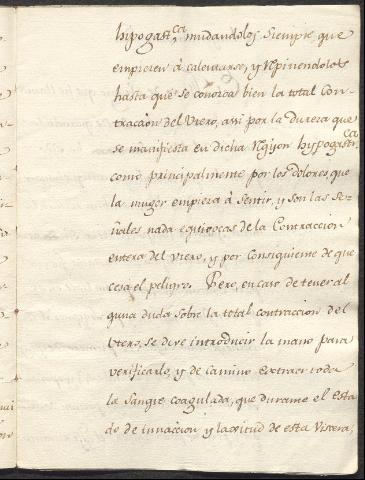 hipogast.ca, mudandolos siempre que
empiezen à calentarse, y repitiendolos
hasta que se conozca bien la total Con-
traccion del Utero, assi por la dureza que
se manifiesta en dicha region hypogast.ca
como principalmente por los dolores, que
la muger empieza à sentir, y son las se-
ñales nada equivocas de la Contraccion
entera del Utero, y por consiguiente de que
cesa el peligro. Pero, en caso de tener al
guna duda sobre la total contraccion del
Utero, se deve introducir la mano para
verificarlo, y de camino extraer toda
la Sangre coagulada, que durante el esta
do de innaccion y laxitud de esta Viscera,